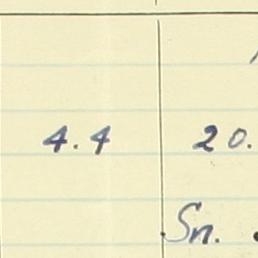 4.4 20.
Sn.